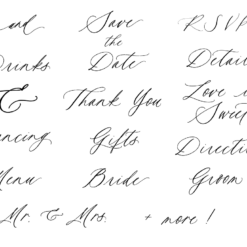 and Save RSVP
the
Drinks Date Detail
& Thank You Love i
Sweet
ancing Gifts Directi
Menu Bride Groom
Mr. & Mrs. + more!